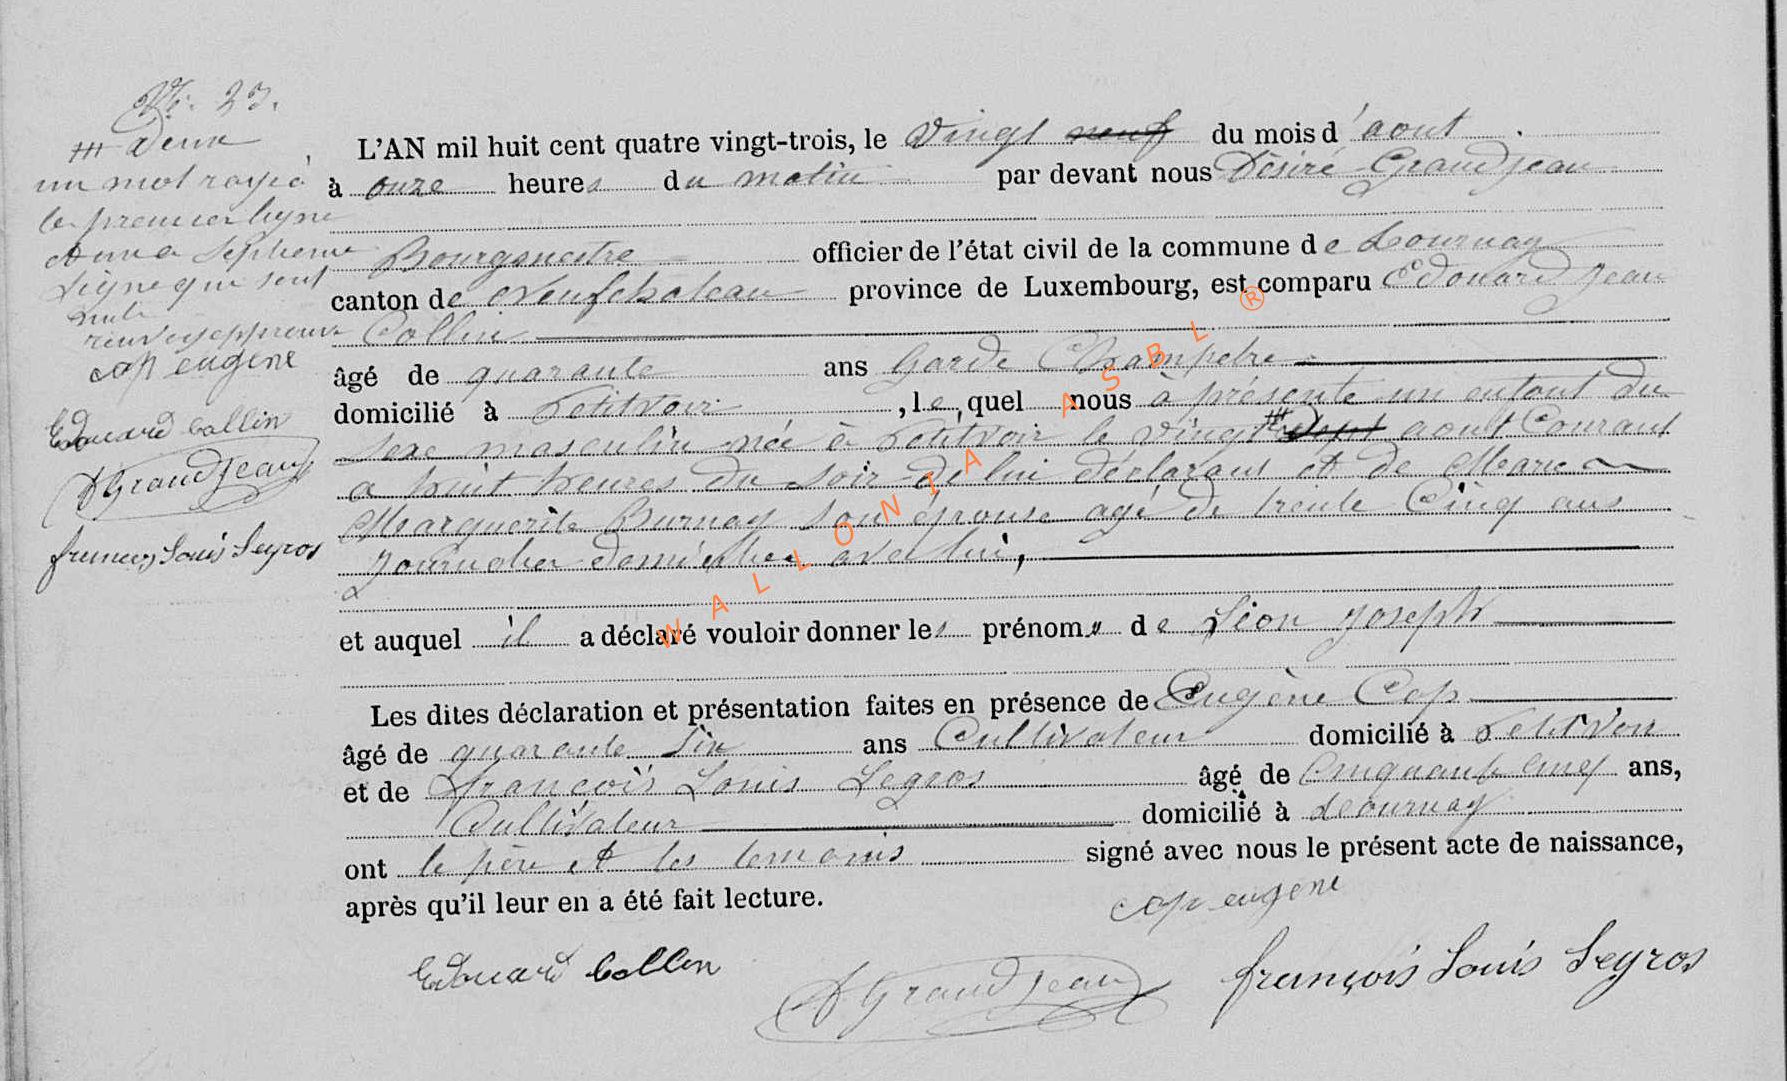 N° 23.
L'AN mil huit cent quatre vingt-trois, le Vingt neuf du mois d'aout
à onze heures du matin par devant nous Désiré Grandjean
Bourgmestre officier de l'état civil de la commune de Tournay
canton de Neufchateau province de Luxembourg, est comparu Edouard Jean
Collin
âgé de quarante ans Garde Champetre
domicilié à Petitvoir, lequel nous à présenté un enfant du
sexe masculin née à Petitvoir le vingt sept aout Courant
a huit heures du soir de lui déclarant et de Marie
Marguerite Burnay son épouse agé de trente Cinq ans
avec lui,
et auquel il a déclaré vouloir donner les prénoms de Léon Joseph
Les dites déclaration et présentation faites en présence de Eugène Cop
âgé de quarante Six ans Cultivateur domicilié à Petitvoir
et de François Louis Legros âgé de Cinquante Cinq ans,
Cultivateur domicilié à Tournay
ont le père et les temoins signé avec nous le présent acte de naissance,
après qu'il leur en a été fait lecture.
cop eugène
Edouard Collin
DGrandjean
françois Louis Legros
deux
un mot rayé à
la premier ligne
et un a septieme
Ligne qui sont
nuls
cop eugène
Edouard Collin
DGrandjean
françois Louis Legros
WALLONIA ASBL ®